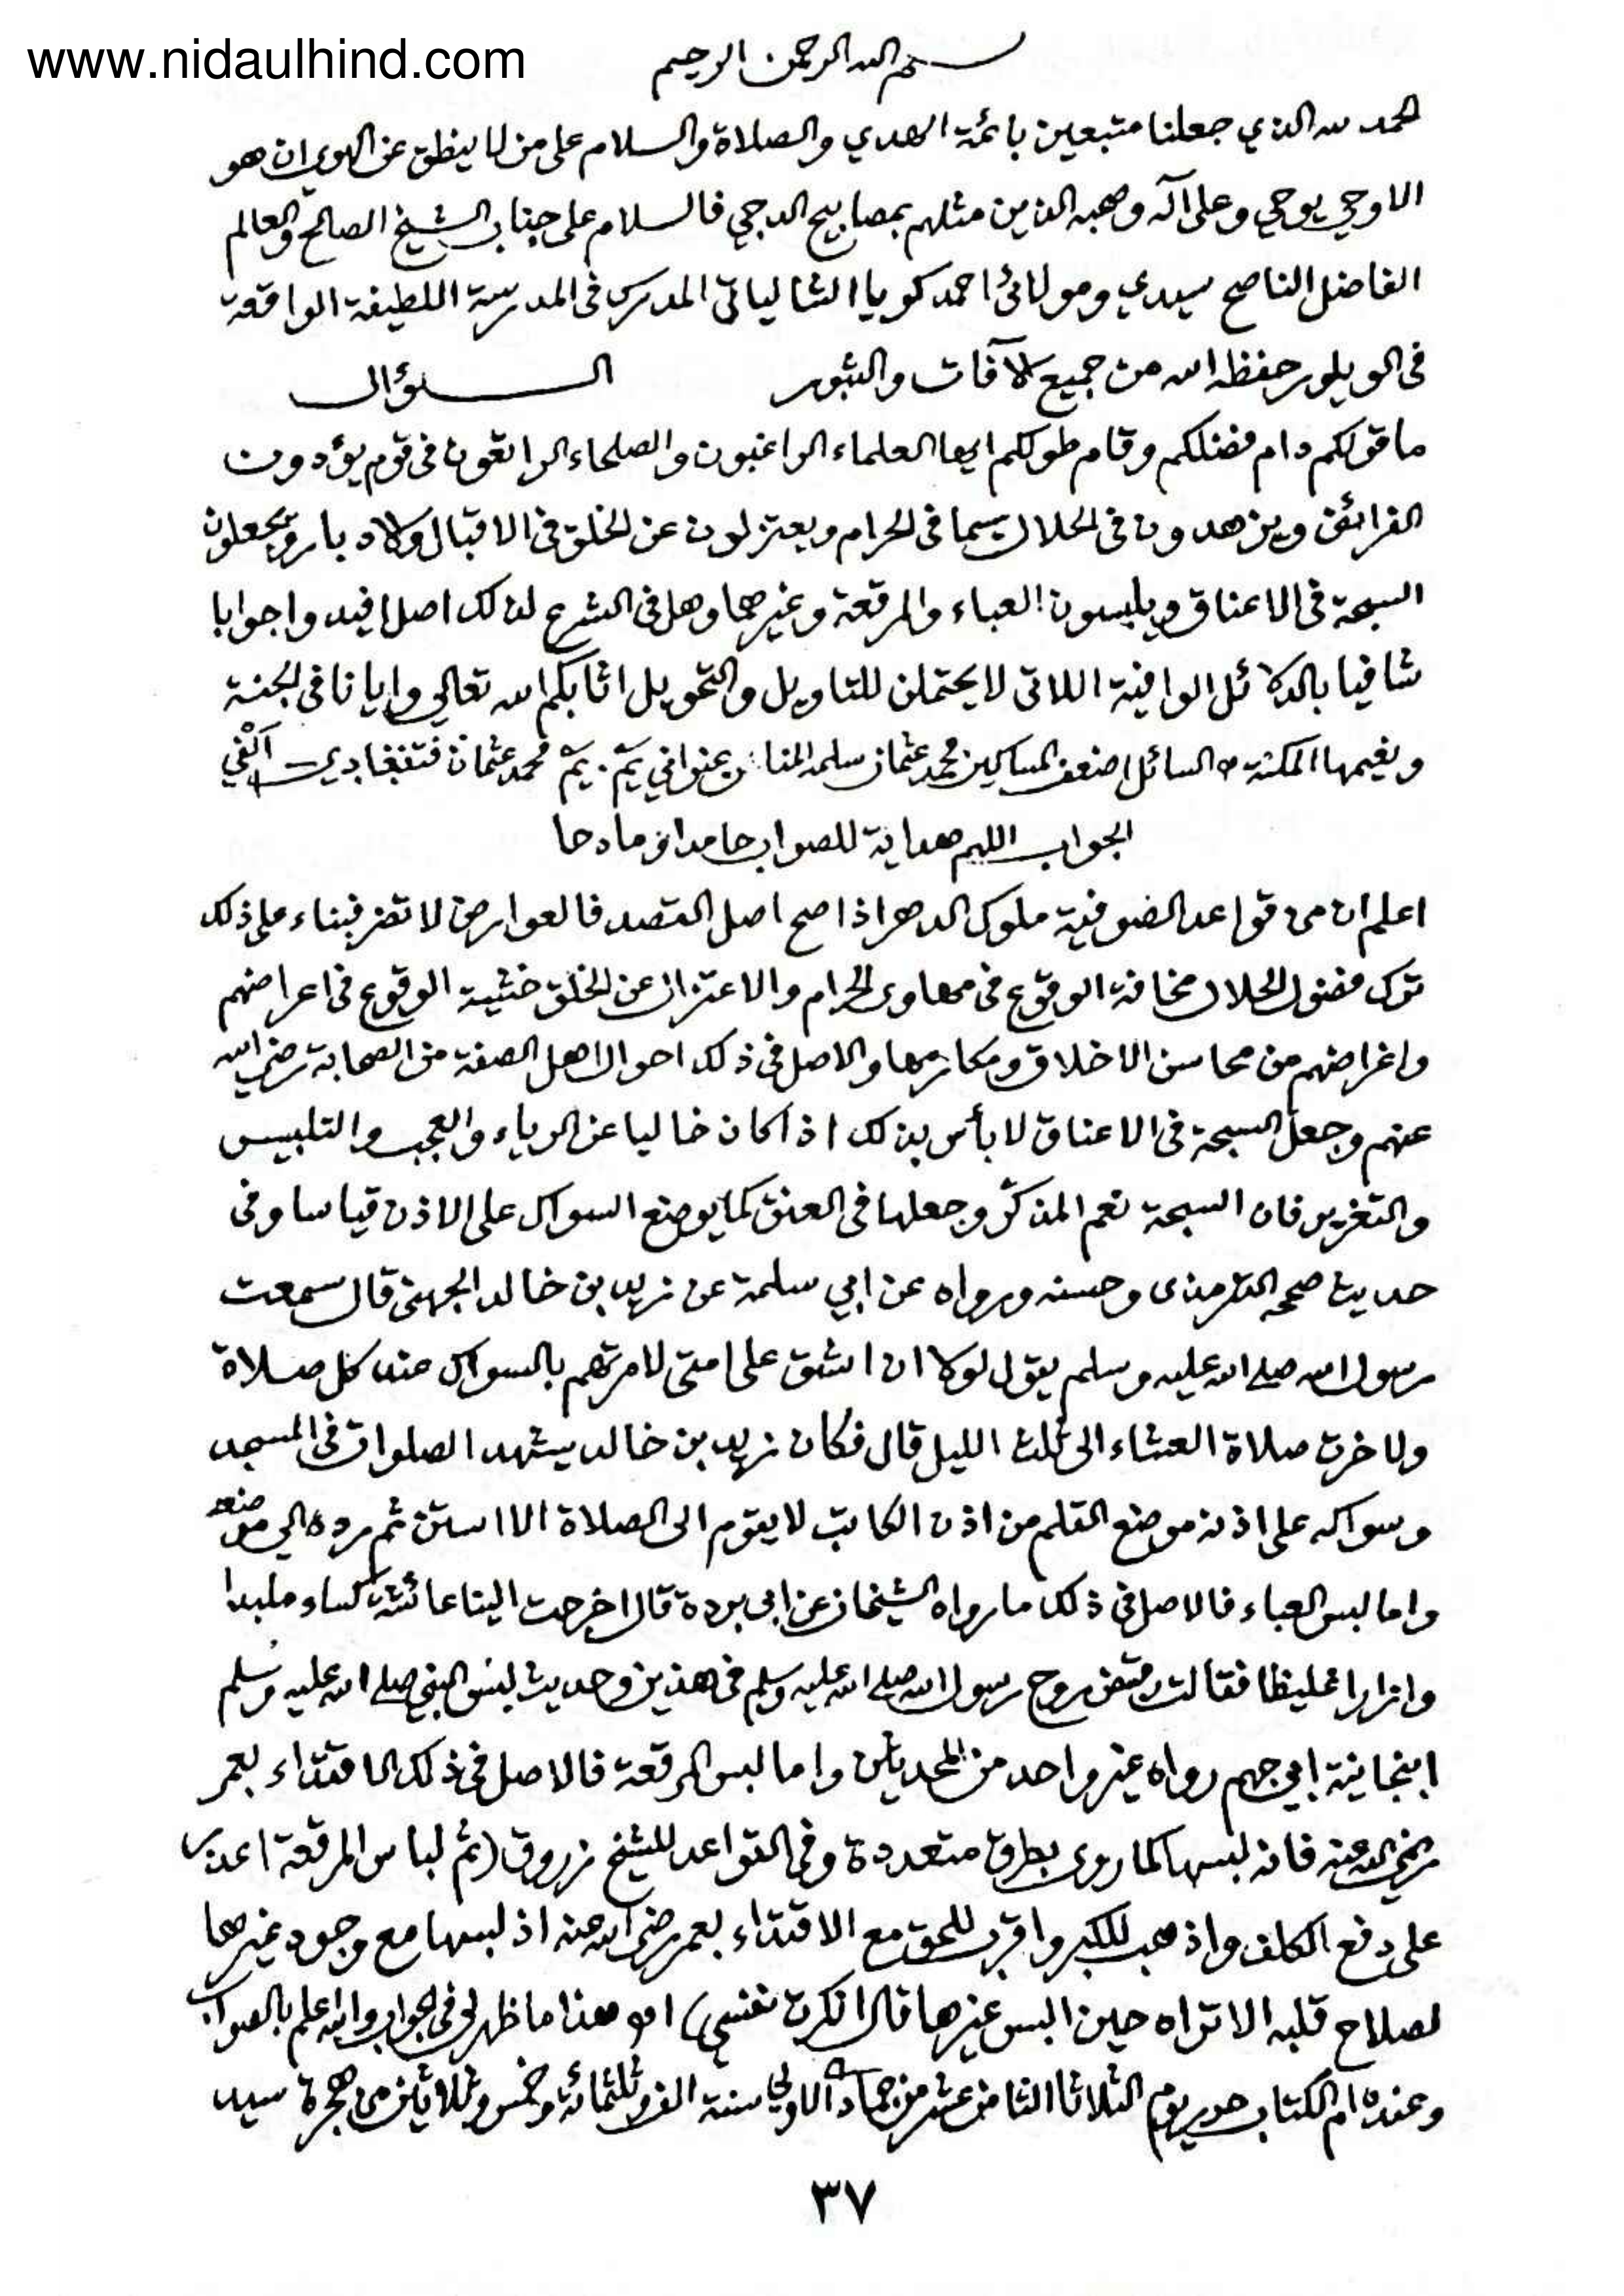 www.nidaulhind.com
بسم الله الرحمن الرحيم
الحمد لله الذي جعلنا متبعين بائمة الهدي والصلاة والسلام على من لا ينطق عن الهوي ان هو
الا وحي يوحي وعلى آله وصحبه الذين مثلهم بمصابيح الدجي فالسلام على جناب الشيخ الصالح والعالم
الفاضل الناصح سيدي ومولائى احمد كويا الشالياتى المدرس فى المدرسة اللطيفة الواقعة
فى الويلور حفظه الله من جميع الآفات والثبور السؤال
ما قولكم دام فضلكم وقام طولكم ايها العلماء الراغبون والصلحاء الراتقون فى قوم يؤدون
الفرائض ويزهدون فى الحلال سيما فى الحرام ويعتزلون عن الخلق فى الاقبال والادبار ويجعلون
السبحة فى الاعناق ويلبسون العباء والمرقعة وغيرهما وهل فى الشرع لذلك اصل افيدوا جوابا
شافيا بالدلائل الوافية اللاتى لا يحتملن للتاويل والتحويل اثابكم الله تعالي وايانا فى الجنة
ونعيمها المكنة السائل اضعف المساكين محمد عثمان سلمه المنان يم. يم محمد عثمان
الجواب اللهم هداية للصواب حامدا ومادحا
اعلم ان من قواعد الصوفية ملوك الدهر اذا صح اصل القصد فالعوارض لا تضر فبناء على ذلك
ترك فضول الحلال مخافة الوقوع فى مهاوى الحرام والاعتزال عن الخلق خشية الوقوع فى اعراضهم
واغراضهم من محاسن الاخلاق ومكارمها والاصل فى ذلك احوال اهل الصفة من الصحابة رضي الله
عنهم وجعل السبحة فى الاعناق لا بأس بذلك اذا كان خاليا عن الرياء والعجب والتلبيس
والتغرير فان السبحة نعم المذكّر وجعلها فى العنق كما يوضع السواك على الاذن قياسا وفى
حديث صححه الترمذى وحسنه ورواه عن ابي سلمة عن زيد بن خالد الجهنى قال سمعت
رسول الله صلى الله عليه وسلم يقول لولا ان اشق على امتى لامرتهم بالسواك عند كل صلاة
ولاخرت صلاة العشاء الى ثلث الليل قال فكان زيد بن خالد يشهد الصلوات فى المسجد
وسواكه على اذنه موضع القلم من اذن الكاتب لا يقوم الى الصلاة الا استن ثم رده الي موضعه
واما لبس العباء فالاصل فى ذلك ما رواه الشيخان عن ابى بردة قال اخرجت الينا عائشة كساء ملبدا
وازارا غليظا فقالت قبض روح رسول الله صلى الله عليه وسلم فى هذين وحديث لبس النبي صلى الله عليه وسلم
انبجانية ابي جهم رواه غير واحد من المحديثن واما لبس المرقعة فالاصل فى ذلك الاقتداء بعمر
رضي الله عنه فانه لبسها كما روى بطرق متعددة وفى القواعد للشيخ زروق (ثم لباس المرقعة اعذر
على دفع الكلف واذهب للكبر واقرب للحق مع الاقتداء بعمر رضي الله عنه اذ لبسها مع وجود غيرها
لصلاح قلبه الا تراه حين البس غيرها قال انكرت نفسي) اهـ هذا ما ظهر لى فى الجواب والله اعلم بالصواب
وعنده ام الكتاب حرر يوم الثلاثا الثامن عشر من جمادى الاولي سنة الف وثلثمائة وخمس وثلاثين من هجرة سيد
٣٧